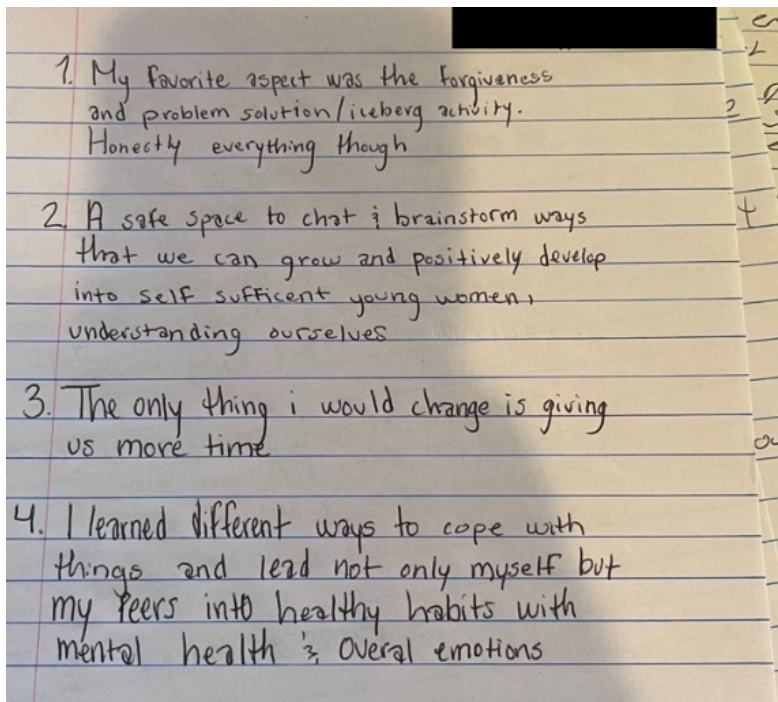 1. My favorite aspect was the forgiveness
and problem solution/iceberg activity.
Honestly everything though
2. A safe space to chat & brainstorm ways
that we can grow and positively develop
into self sufficent young women,
understanding ourselves
3. The only thing i would change is giving
us more time
4. I learned different ways to cope with
things and lead not only myself but
my Peers into healthy habits with
mental health & overal emotions